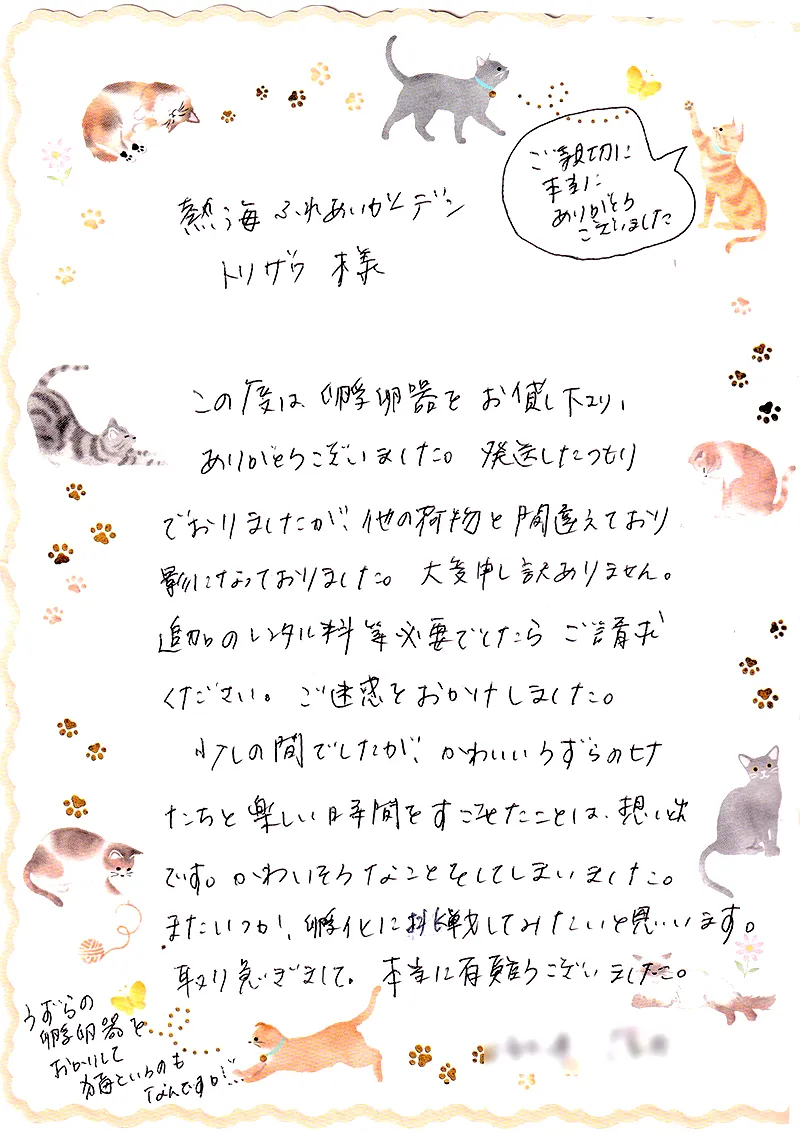 熱海ふれあいガーデン
トリザウ 様
ご親切に
本当に
ありがとう
ございました
この度は、孵卵器を お貸し下さり、
ありがとうございました。 発送したつもり
でおりましたが、他の荷物と間違えており
になっておりました。 大変申し訳ありません。
追加のレンタル料等必要でしたら ご請求
ください。 ご迷惑をおかけしました。
少しの間でしたが、かわいいうずらのヒナ
たちと楽しい時間をすごせたことは、想い出
です。かわいそうなことをしてしまいました。
またいつか、孵化に挑戦してみたいと思います。
取り急ぎまして。 本当に有難うございました。
うずらの
孵卵器を
おかりして
猫というのも
なんですが…